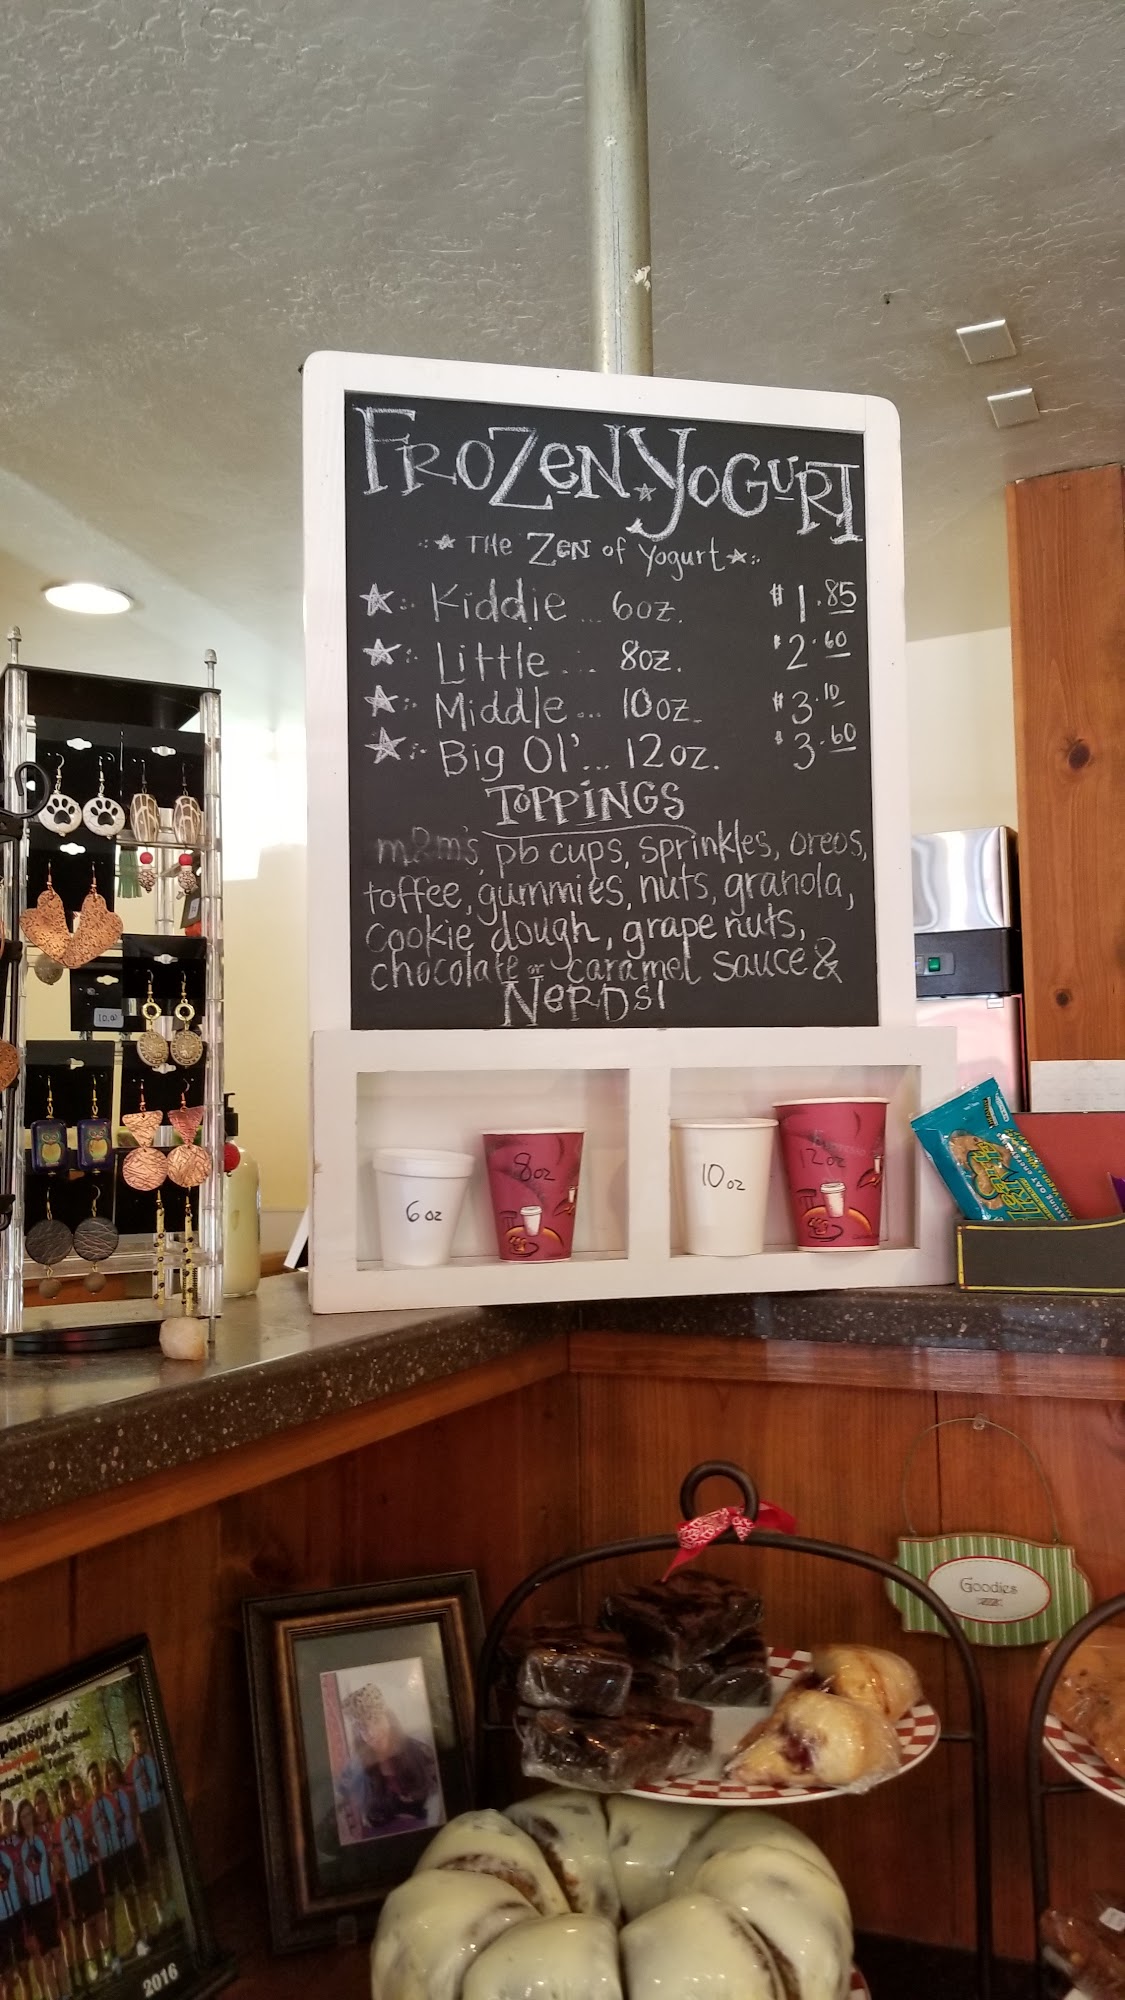 FROZEN YOGURT
THE ZEN of Yogurt
Kiddie ... 6oz. $1.85
Little ... 8oz. $2.60
Middle ... 10oz. $3.10
Big Ol' ... 12oz. $3.60
TOPPINGS
m&m's, pb cups, sprinkles, oreos,
toffee, gummies, nuts, granola,
cookie dough, grape nuts,
chocolate or caramel sauce &
NERDS!
6 oz
8oz
10 oz
12oz
10.00
Goodies
2016